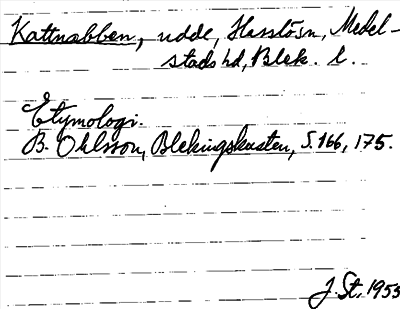 Kattnabben, udde, Hasslösn, Medel-
stads hd, Blek. l.
Etymologi.
B. Ohlsson, Blekingskusten, S. 166, 175.
J. St. 1955